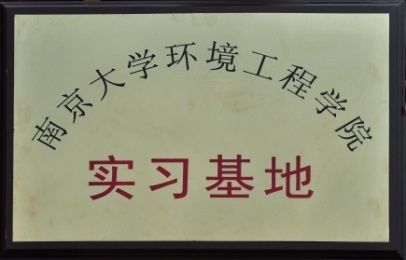 南京大学环境工程学院
实习基地